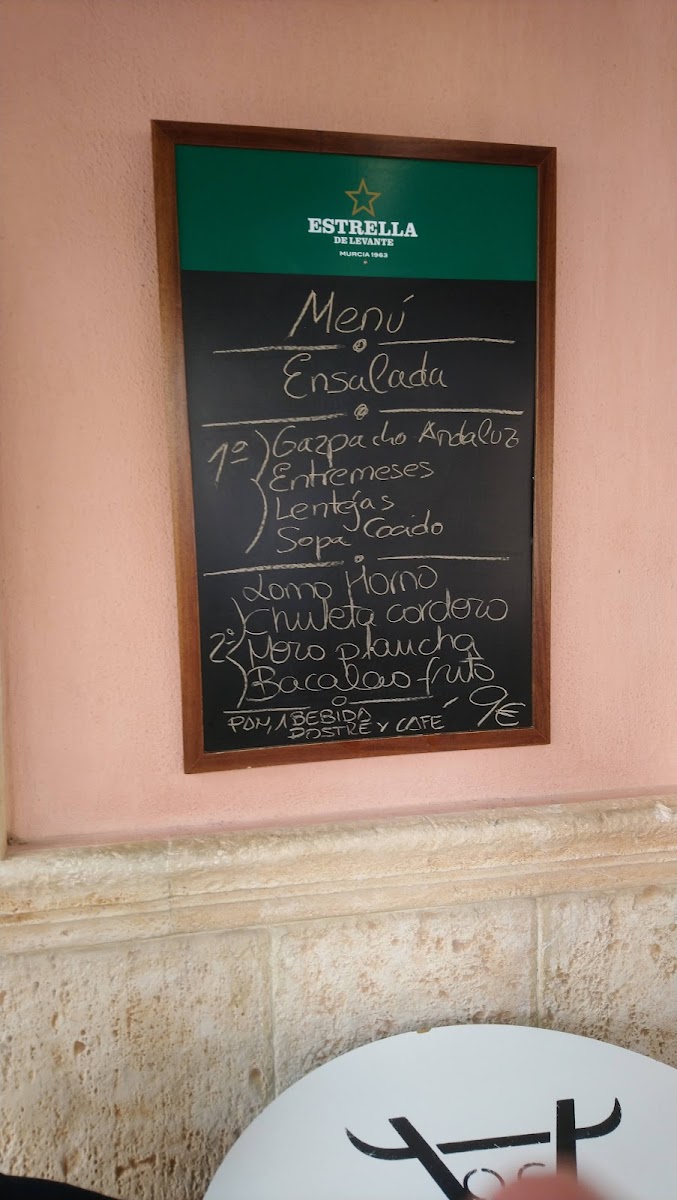 ESTRELLA
DE LEVANTE
MURCIA 1963
Menú
Ensalada
1º Gazpacho Andaluz
Entremeses
Lentejas
Sopa Cocido
Lomo Horno
2º Chuleta cordero
Mero plancha
Bacalao frito
PAN, 1 BEBIDA
POSTRE Y CAFÉ
9€